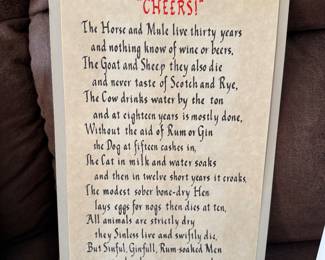 "CHEERS!"
The Horse and Mule live thirty years
and nothing know of wine or beers.
The Goat and Sheep they also die
and never taste of Scotch and Rye,
The Cow drinks water by the ton
and at eighteen years is mostly done,
Without the aid of Rum or Gin
she Dog at fifteen cashes in,
The Cat in milk and water soaks
and then in twelve short years it croaks,
The modest sober bone-dry Hen
lays eggs for nogs then dies at ten,
All animals are strictly dry
they Sinless live and swiftly die,
But Sinful, Ginfull, Rum-soaked Men